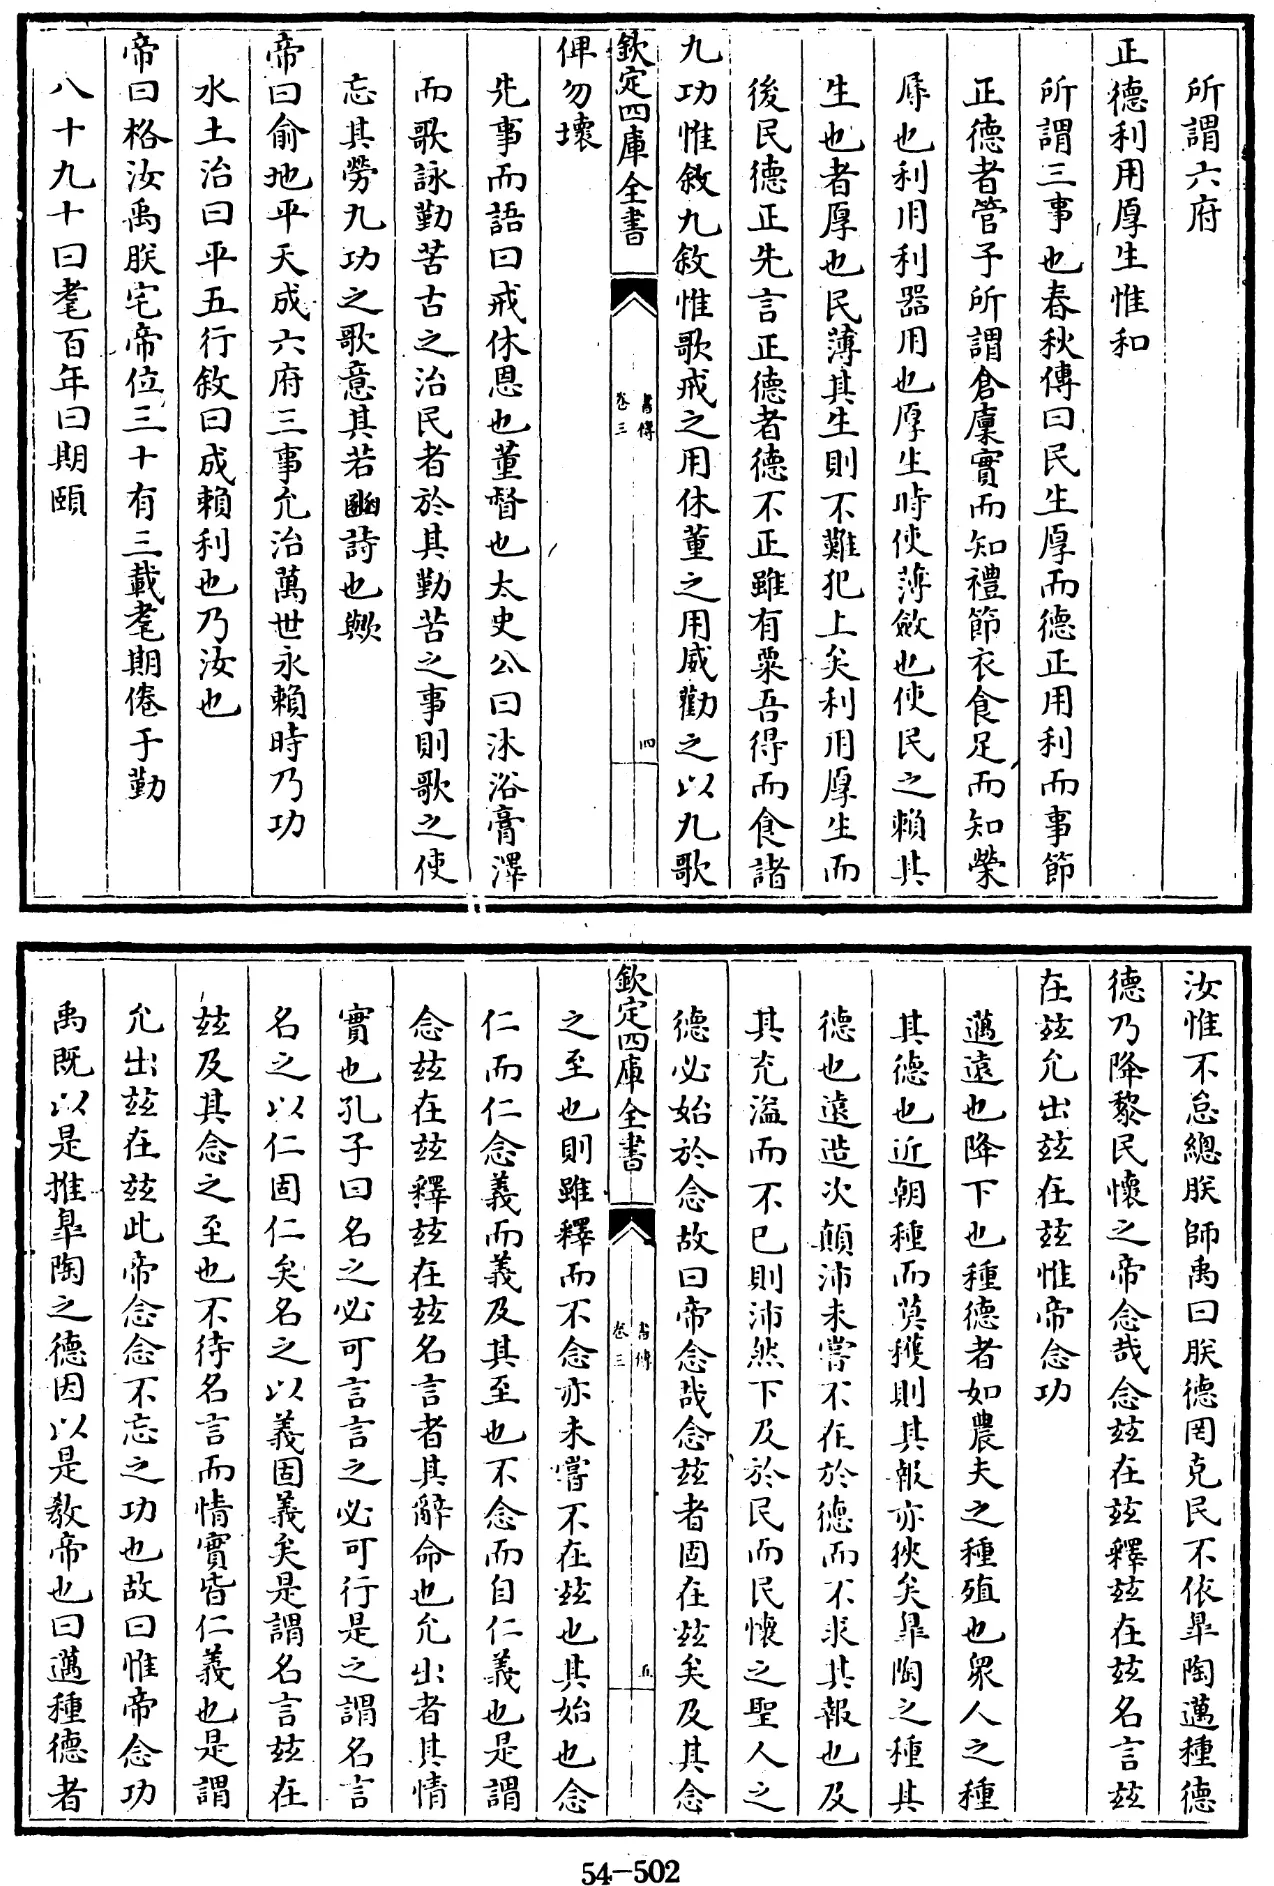 所謂六府
正德利用厚生惟和
所謂三事也春秋傳曰民生厚而德正用利而事節
正德者管子所謂倉廩實而知禮節衣食足而知榮
辱也利用利器用也厚生時使薄斂也使民之賴其
生也者厚也民薄其生則不難犯上矣利用厚生而
後民德正先言正德者德不正雖有粟吾得而食諸
九功惟敘九敘惟歌戒之用休董之用威勸之以九歌
欽定四庫全書
書傳
卷三
四
俾勿壞
先事而語曰戒休恩也董督也太史公曰沐浴膏澤
而歌詠勤苦古之治民者於其勤苦之事則歌之使
忘其勞九功之歌意其若豳詩也歟
帝曰俞地平天成六府三事允治萬世永賴時乃功
水土治曰平五行敘曰成賴利也乃汝也
帝曰格汝禹朕宅帝位三十有三載耄期倦于勤
八十九十曰耄百年曰期頤
汝惟不怠總朕師禹曰朕德罔克民不依臯陶邁種德
德乃降黎民懷之帝念哉念玆在玆釋玆在玆名言玆
在玆允出玆在玆惟帝念功
邁遠也降下也種德者如農夫之種殖也衆人之種
其德也近朝種而莫穫則其報亦狹矣臯陶之種其
德也遠造次顛沛未嘗不在於德而不求其報也及
其充溢而不已則沛然下及於民而民懷之聖人之
德必始於念故曰帝念哉念玆者固在玆矣及其念
欽定四庫全書
書傳
卷三
五
之至也則雖釋而不念亦未嘗不在玆也其始也念
仁而仁念義而義及其至也不念而自仁義也是謂
念玆在玆釋玆在玆名言者其辭命也允出者其情
實也孔子曰名之必可言言之必可行是之謂名言
名之以仁固仁矣名之以義固義矣是謂名言玆在
玆及其念之至也不待名言而情實皆仁義也是謂
允出玆在玆此帝念念不忘之功也故曰惟帝念功
禹既以是推臯陶之德因以是教帝也曰邁種德者
54-502